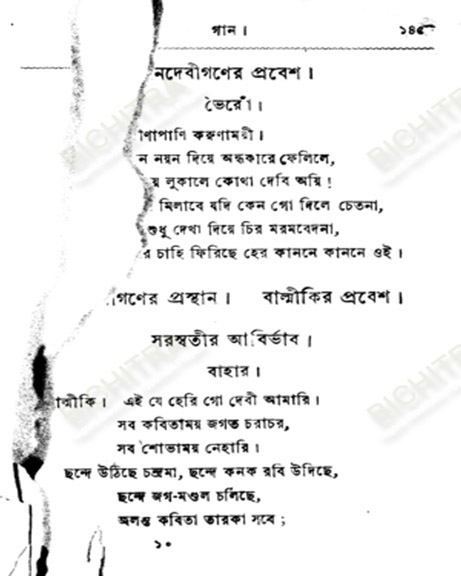 গান। ১৪৫
নদেবীগণের প্রবেশ।
ভৈরোঁ।
ণাপাণি করুণাময়ী।
ন নয়ন দিয়ে অন্ধকারে ফেলিলে,
য় লুকালে কোথা দেবি অয়ি!
মিলাবে যদি কেন গো দিলে চেতনা,
শুধু দেখা দিয়ে চির মরমবেদনা,
র চাহি ফিরিছে হের কাননে কাননে ওই।
গণের প্রস্থান। বাল্মীকির প্রবেশ।
সরস্বতীর আবির্ভাব।
বাহার।
ল্মীকি। এই যে হেরি গো দেবী আমারি।
সব কবিতাময় জগত চরাচর,
সব শোভাময় নেহারি।
ছন্দে উঠিছে চন্দ্রমা, ছন্দে কনক রবি উদিছে,
ছন্দে জগ-মণ্ডল চলিছে,
জ্বলন্ত কবিতা তারকা সবে;
১০
BICHITRA
BICHITRA
BICHITRA
BICHITRA